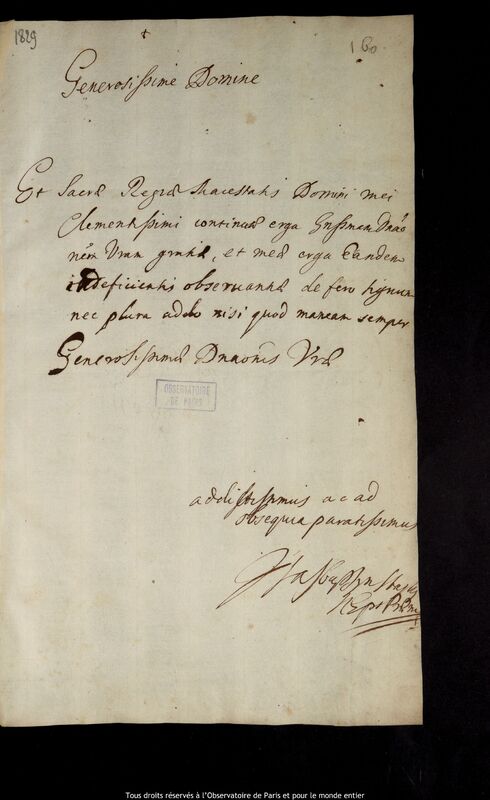 1829
160
Generosissime Domine
Et Sacrae Regiae Maiestatis Domini mei
Clementissimi continuae erga Gnsmam Dnaõ
nem Vram gratiae, et meae erga Eandem
indeficientis observantiae defero signum
nec plura addo nisi quod maneam semper
Generosissimae Dnaonis Vrae
OBSERVATOIRE
DE PARIS
addictissimus ac ad
obsequia paratissimus
Tous droits réservés à l'Observatoire de Paris et pour le monde entier